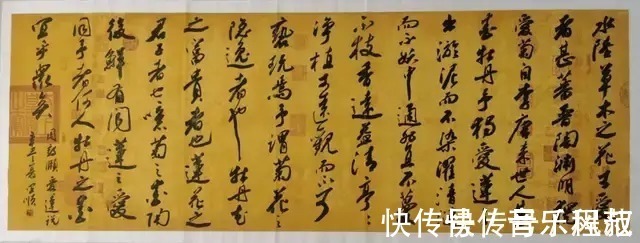 水陸草木之花可愛
者甚蕃晋陶淵明獨
愛菊自李唐来世人
盛牡丹予獨愛蓮
出淤泥而不染濯清漣
而不妖中通外直不蔓
不枝香遠益清亭亭
淨植可遠觀而不可
褻玩焉予謂菊花之
隐逸者也牡丹花
之富貴者也蓮花之
君子者也噫菊之愛陶
後鮮有聞蓮之愛
同予者何人牡丹之愛
宜乎眾矣
周敦頤愛蓮說
快传号